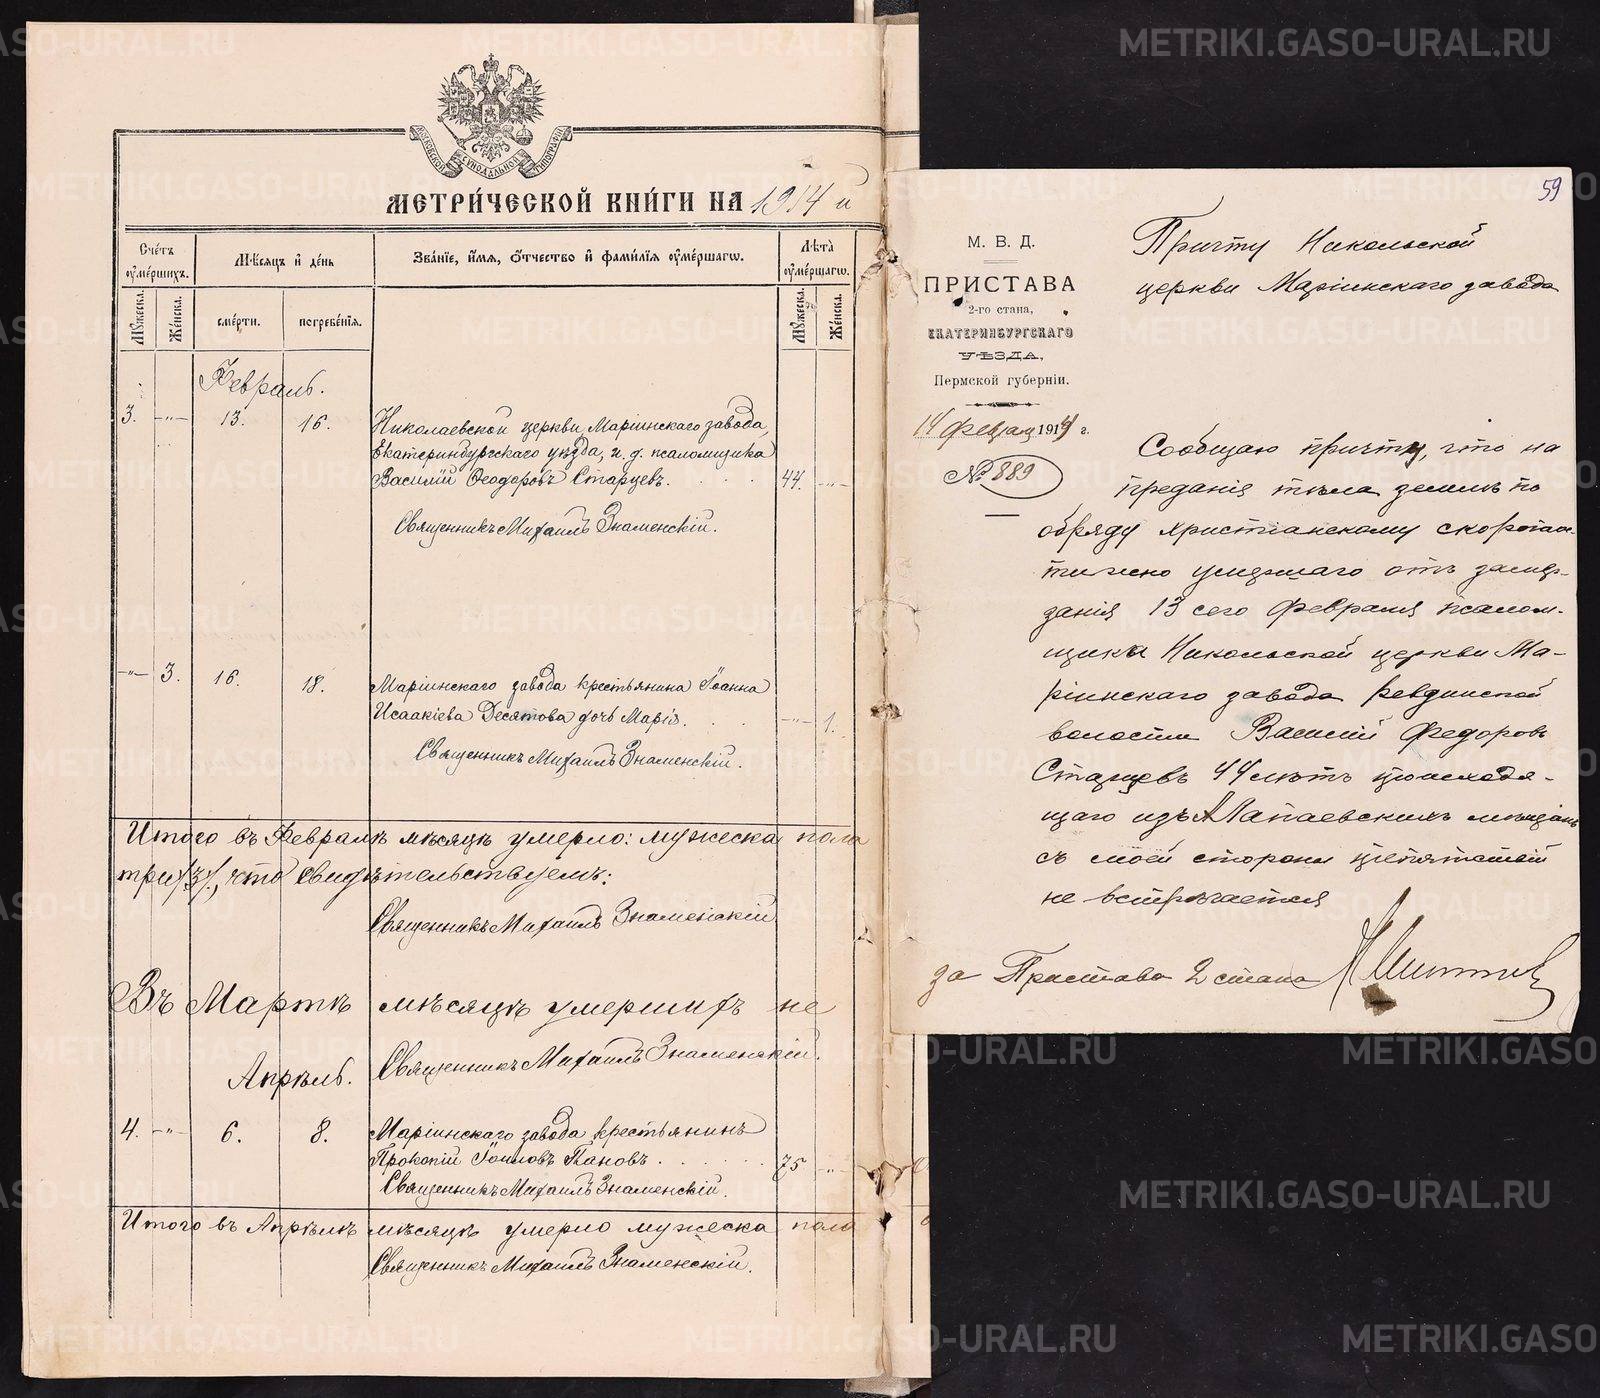 МОСКОВСКОЙ СѴНОДАЛЬНОЙ ТИПОГРАФІИ
МЕТРИ́ЧЕСКОЙ КНИ́ГИ НА 1914 й
Счётъ ᲂумершихъ.
Мѣсяцъ и день
Званіе, имя, отчество и фамилія ᲂумершагѡ.
Лѣта ᲂумершагѡ.
Мужеска.
Женска.
смерти.
погребенія.
Мужеска.
Женска.
Февраль.
3. -"- 13. 16. Николаевской церкви, Маріинскаго завода,
Екатеринбургскаго уѣзда, и. д. псаломщика
Василій Ѳеодоровъ Старцевъ. 44. -"-
Священникъ Михаилъ Знаменскій.
-"- 3. 16. 18. Маріинскаго завода крестьянина Іоанна
Исаакіева Десятова дочь Марія. -"- 1.
Священникъ Михаилъ Знаменскій.
Итого въ Февралѣ мѣсяцѣ умерло: мужеска пола
три /3/, что свидѣтельствуемъ:
Священникъ Михаилъ Знаменскій
Въ Мартѣ мѣсяцѣ умершихъ не
Священникъ Михаилъ Знаменскій.
Апрѣль.
4. -"- 6. 8. Маріинскаго завода крестьянинъ
Прокопій Пановъ. 75 -"-
Священникъ Михаилъ Знаменскій.
Итого въ Апрѣлѣ мѣсяцѣ умерло мужеска пола
Священникъ Михаилъ Знаменскій.
59
М. В. Д.
ПРИСТАВА
2-го стана,
ЕКАТЕРИНБУРГСКАГО
УѢЗДА,
Пермской губерніи.
14 Феврал 1914 г.
№ 889
Причту Никольской
церкви Маріинскаго завода
Сообщаю причту, что на
преданія тѣла землѣ по
обряду христіанскому скоропос-
тижно умершаго отъ
13 сего Февраля псалом-
щика Никольской церкви Ма-
ріинскаго завода Ревдинской
волости Василій Федоровъ
Старцевъ 44 лѣтъ происходя-
щаго изъ Алапаевскихъ мѣщанъ
съ моей стороны препятствій
не встрѣчается
за Пристава 2 стана
METRIKI.GASO-URAL.RU